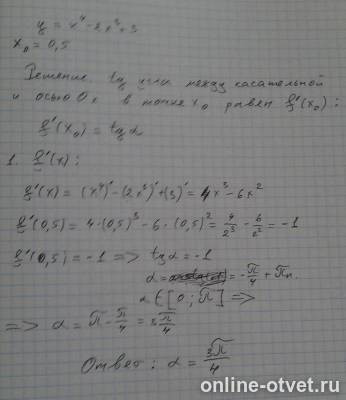 y = x⁴ - 2x³ + 3
x₀ = 0,5
Решение tg угла между касательной
и осью Ox в точке x₀ равен f'(x₀):
f'(x₀) = tg α
1. f'(x):
f'(x) = (x⁴)' - (2x³)' + (3)' = 4x³ - 6x²
f'(0,5) = 4·(0,5)³ - 6·(0,5)² = 4/2³ - 6/2² = -1
f'(0,5) = -1 => tg α = -1
α = -π/4 + πn.
α ∈ [0; π] =>
=> α = π - π/4 = 3π/4
Ответ: α = 3π/4
online-otvet.ru